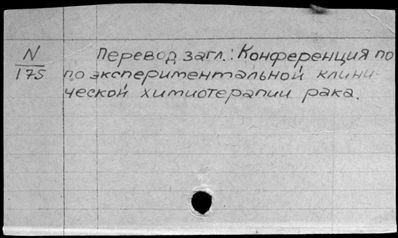 N
175
Перевод загл.: Конференция по
по экспериментальной клини-
ческой химиотерапии рака.